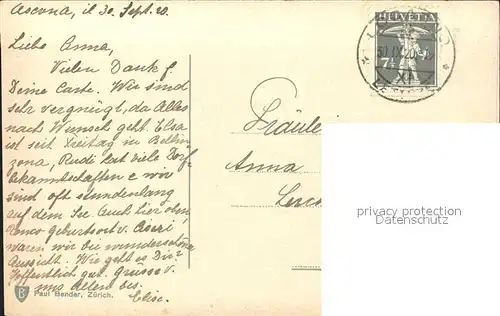 Ascona, il 30. Sept. 20.
Liebe Anna,
Vielen Dank f.
Deine Carte. Wir sind
sehr vergnügt, da Alles
nach Wunsch geht. Elsa
ist seit Freitag in Bellin
zona, Rudi hat viele Dorf-
bekanntschaften & wir
sind oft stundenlang
auf dem See. Auch hier oben
Geburtsort v.
waren wir die wunderschöne
Aussicht. Wie geht es Dir?
Hoffentlich gut. Grüsse v.
uns Allen bes.
Elise.
HELVETIA
7½
30.IX.20
XI
Fräule
Anna
privacy protection
B Paul Bender, Zürich.